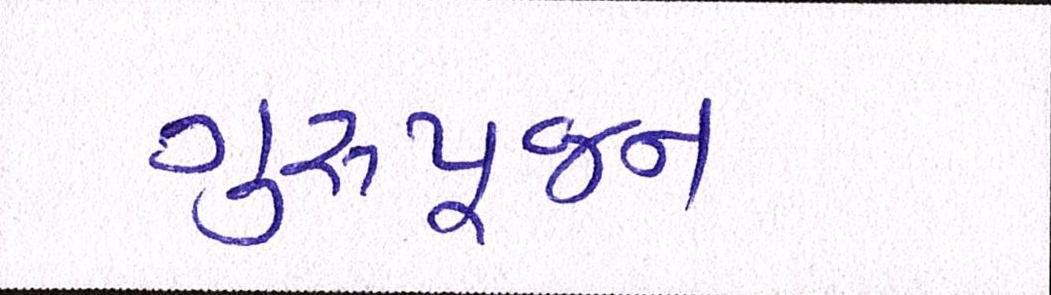 ગુરુપૂજન